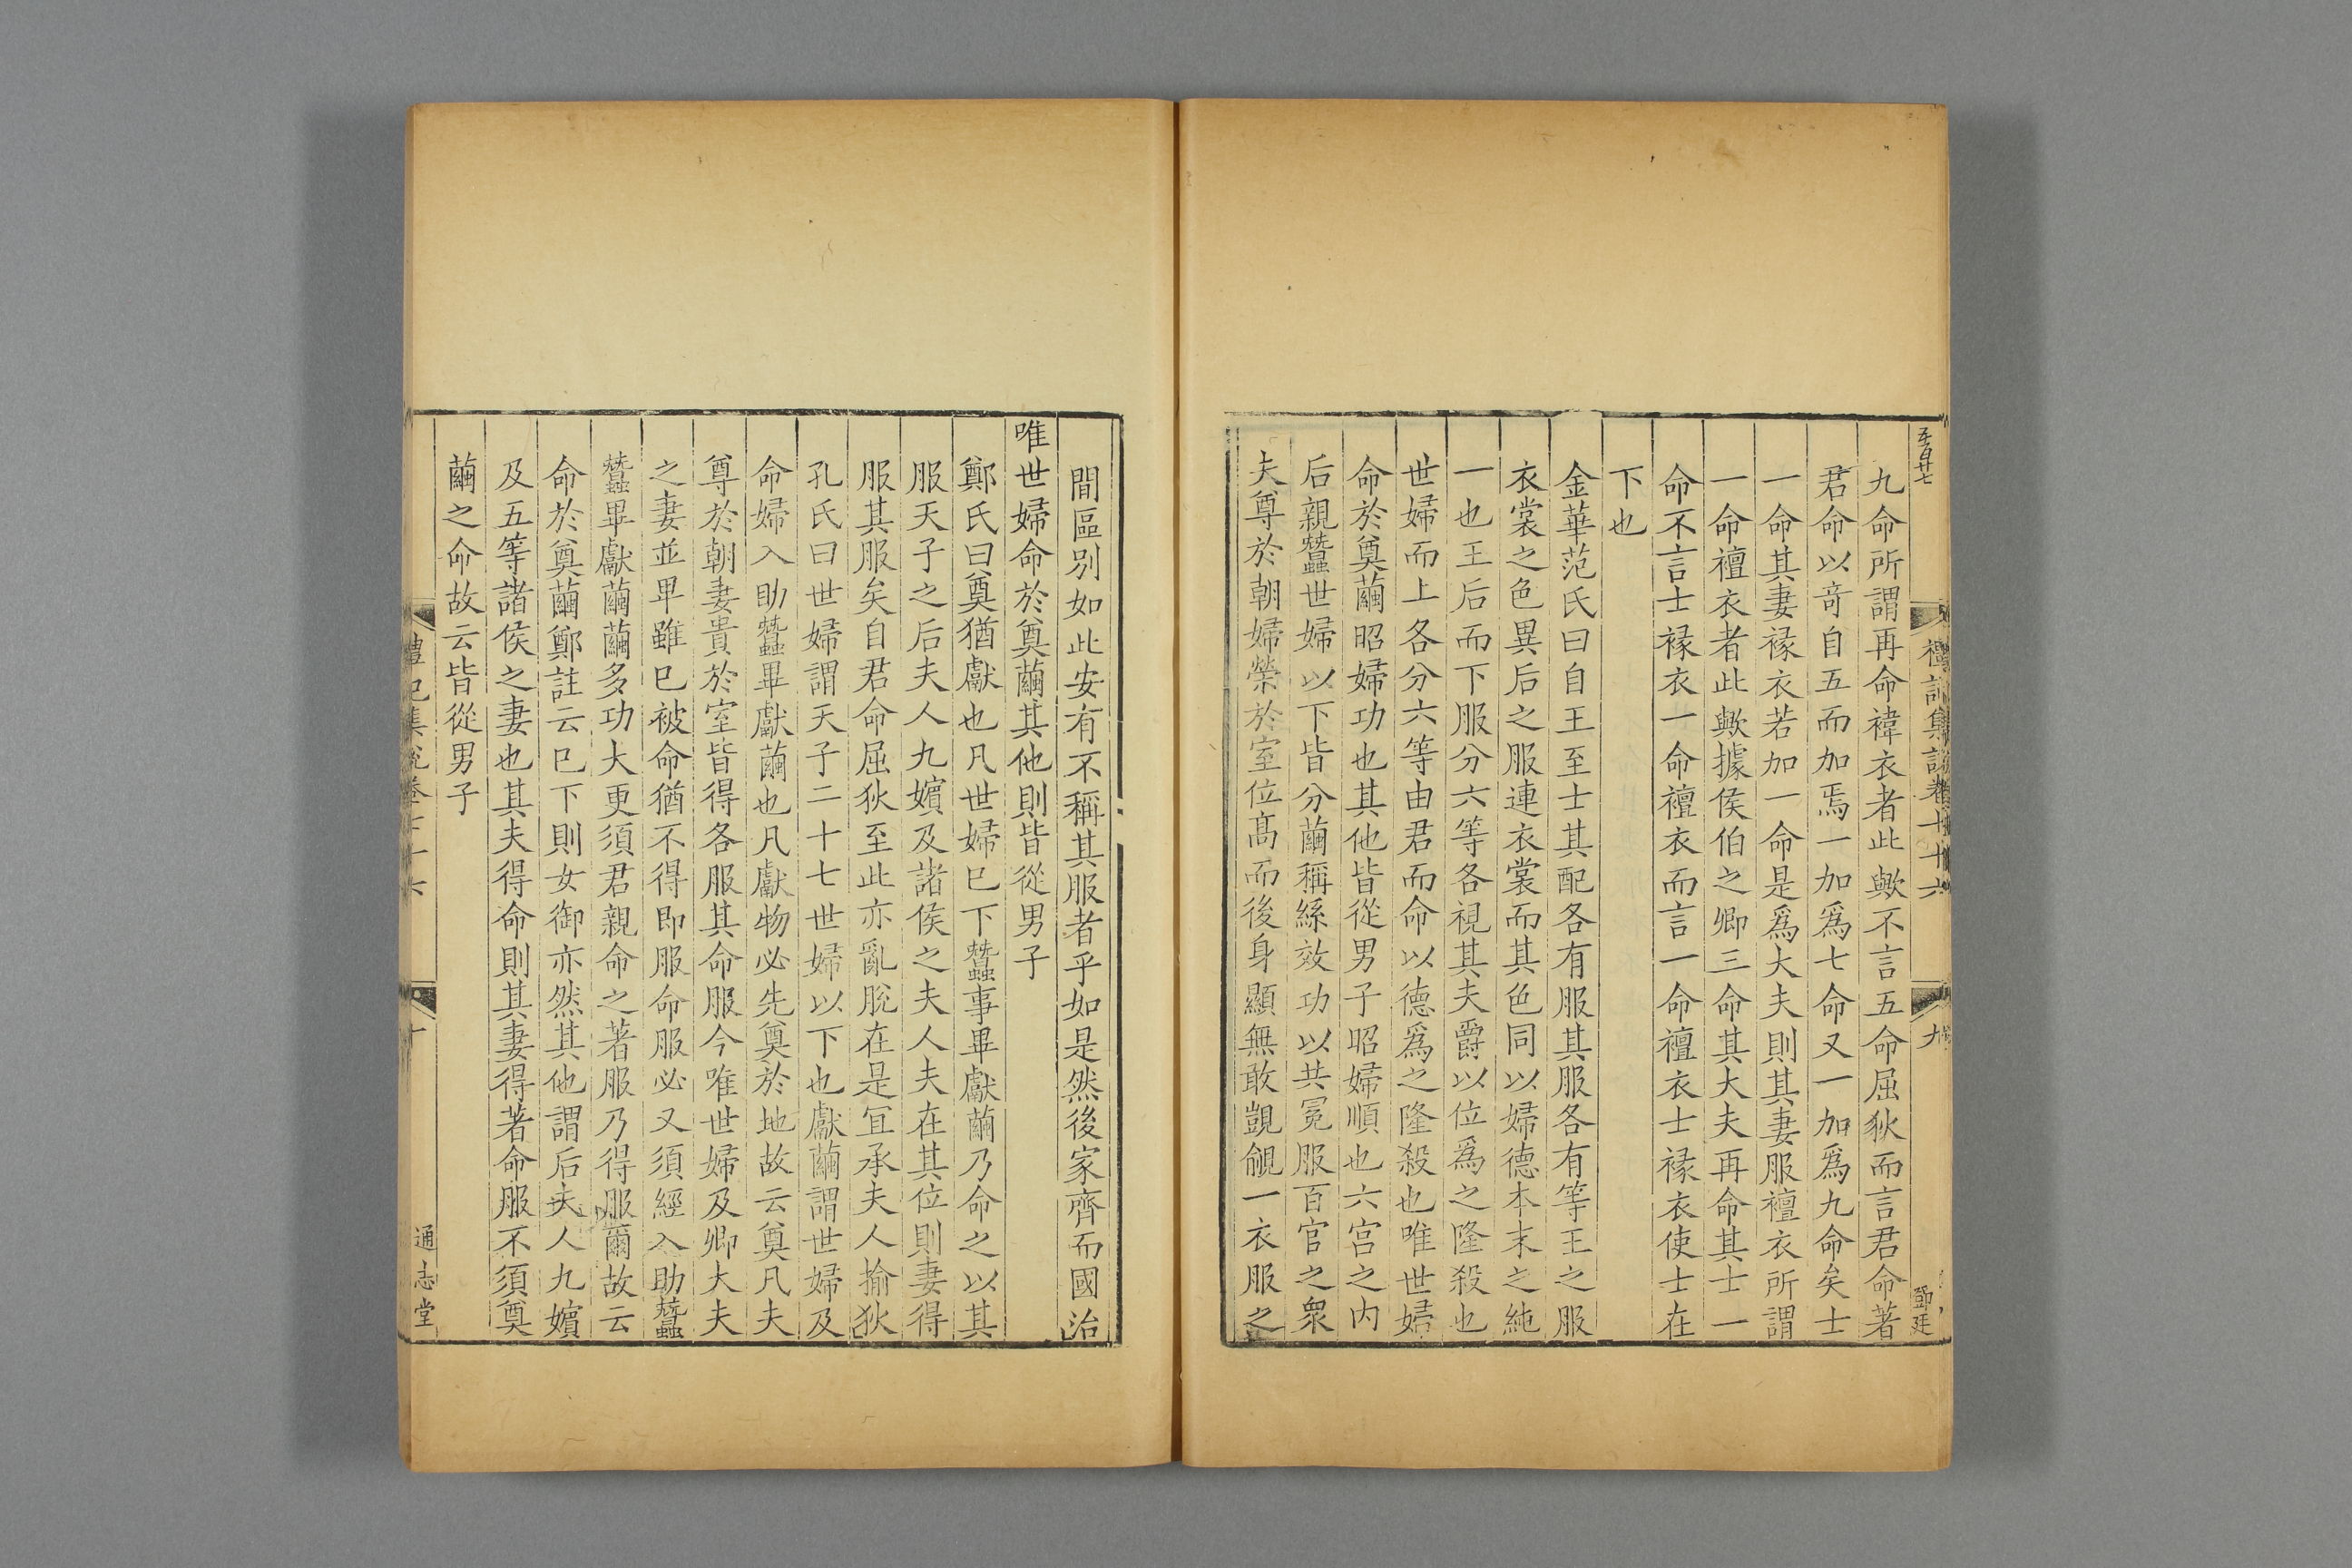 九命所謂再命褘衣者此歟不言五命屈狄而言君命著
君命以竒自五而加焉一加爲七命又一加爲九命矣士
一命其妻褖衣若加一命是爲大夫則其妻服襢衣所謂
一命襢衣者此歟據侯伯之卿三命其大夫再命其士一
命不言士褖衣一命襢衣而言一命襢衣士褖衣使士在
下也
金華范氏曰自王至士其配各有服其服各有等王之服
衣裳之色異后之服連衣裳而其色同以婦德本末之純
一也王后而下服分六等各視其夫爵以位爲之隆殺也
世婦而上各分六等由君而命以德爲之隆殺也唯世婦
命於奠繭昭婦功也其他皆從男子昭婦順也六宮之内
后親蠶世婦以下皆分繭稱絲效功以共冕服百官之衆
夫尊於朝婦榮於室位髙而後身顯無敢覬覦一衣服之
禮記集說卷七十六
九
鄧廷
間區別如此安有不稱其服者乎如是然後家齊而國治
唯世婦命於奠繭其他則皆從男子
鄭氏曰奠猶獻也凡世婦已下蠶事畢獻繭乃命之以其
服天子之后夫人九嬪及諸侯之夫人夫在其位則妻得
服其服矣自君命屈狄至此亦亂脫在是冝承夫人揄狄
孔氏曰世婦謂天子二十七世婦以下也獻繭謂世婦及
命婦入助蠶畢獻繭也凡獻物必先奠於地故云奠凡夫
尊於朝妻貴於室皆得各服其命服今唯世婦及卿大夫
之妻並卑雖已被命猶不得即服命服必又須經入助蠶
蠶畢獻繭繭多功大更須君親命之著服乃得服爾故云
命於奠繭鄭註云已下則女御亦然其他謂后夫人九嬪
及五等諸侯之妻也其夫得命則其妻得著命服不須奠
繭之命故云皆從男子
禮記集說卷七十六
十
通志堂